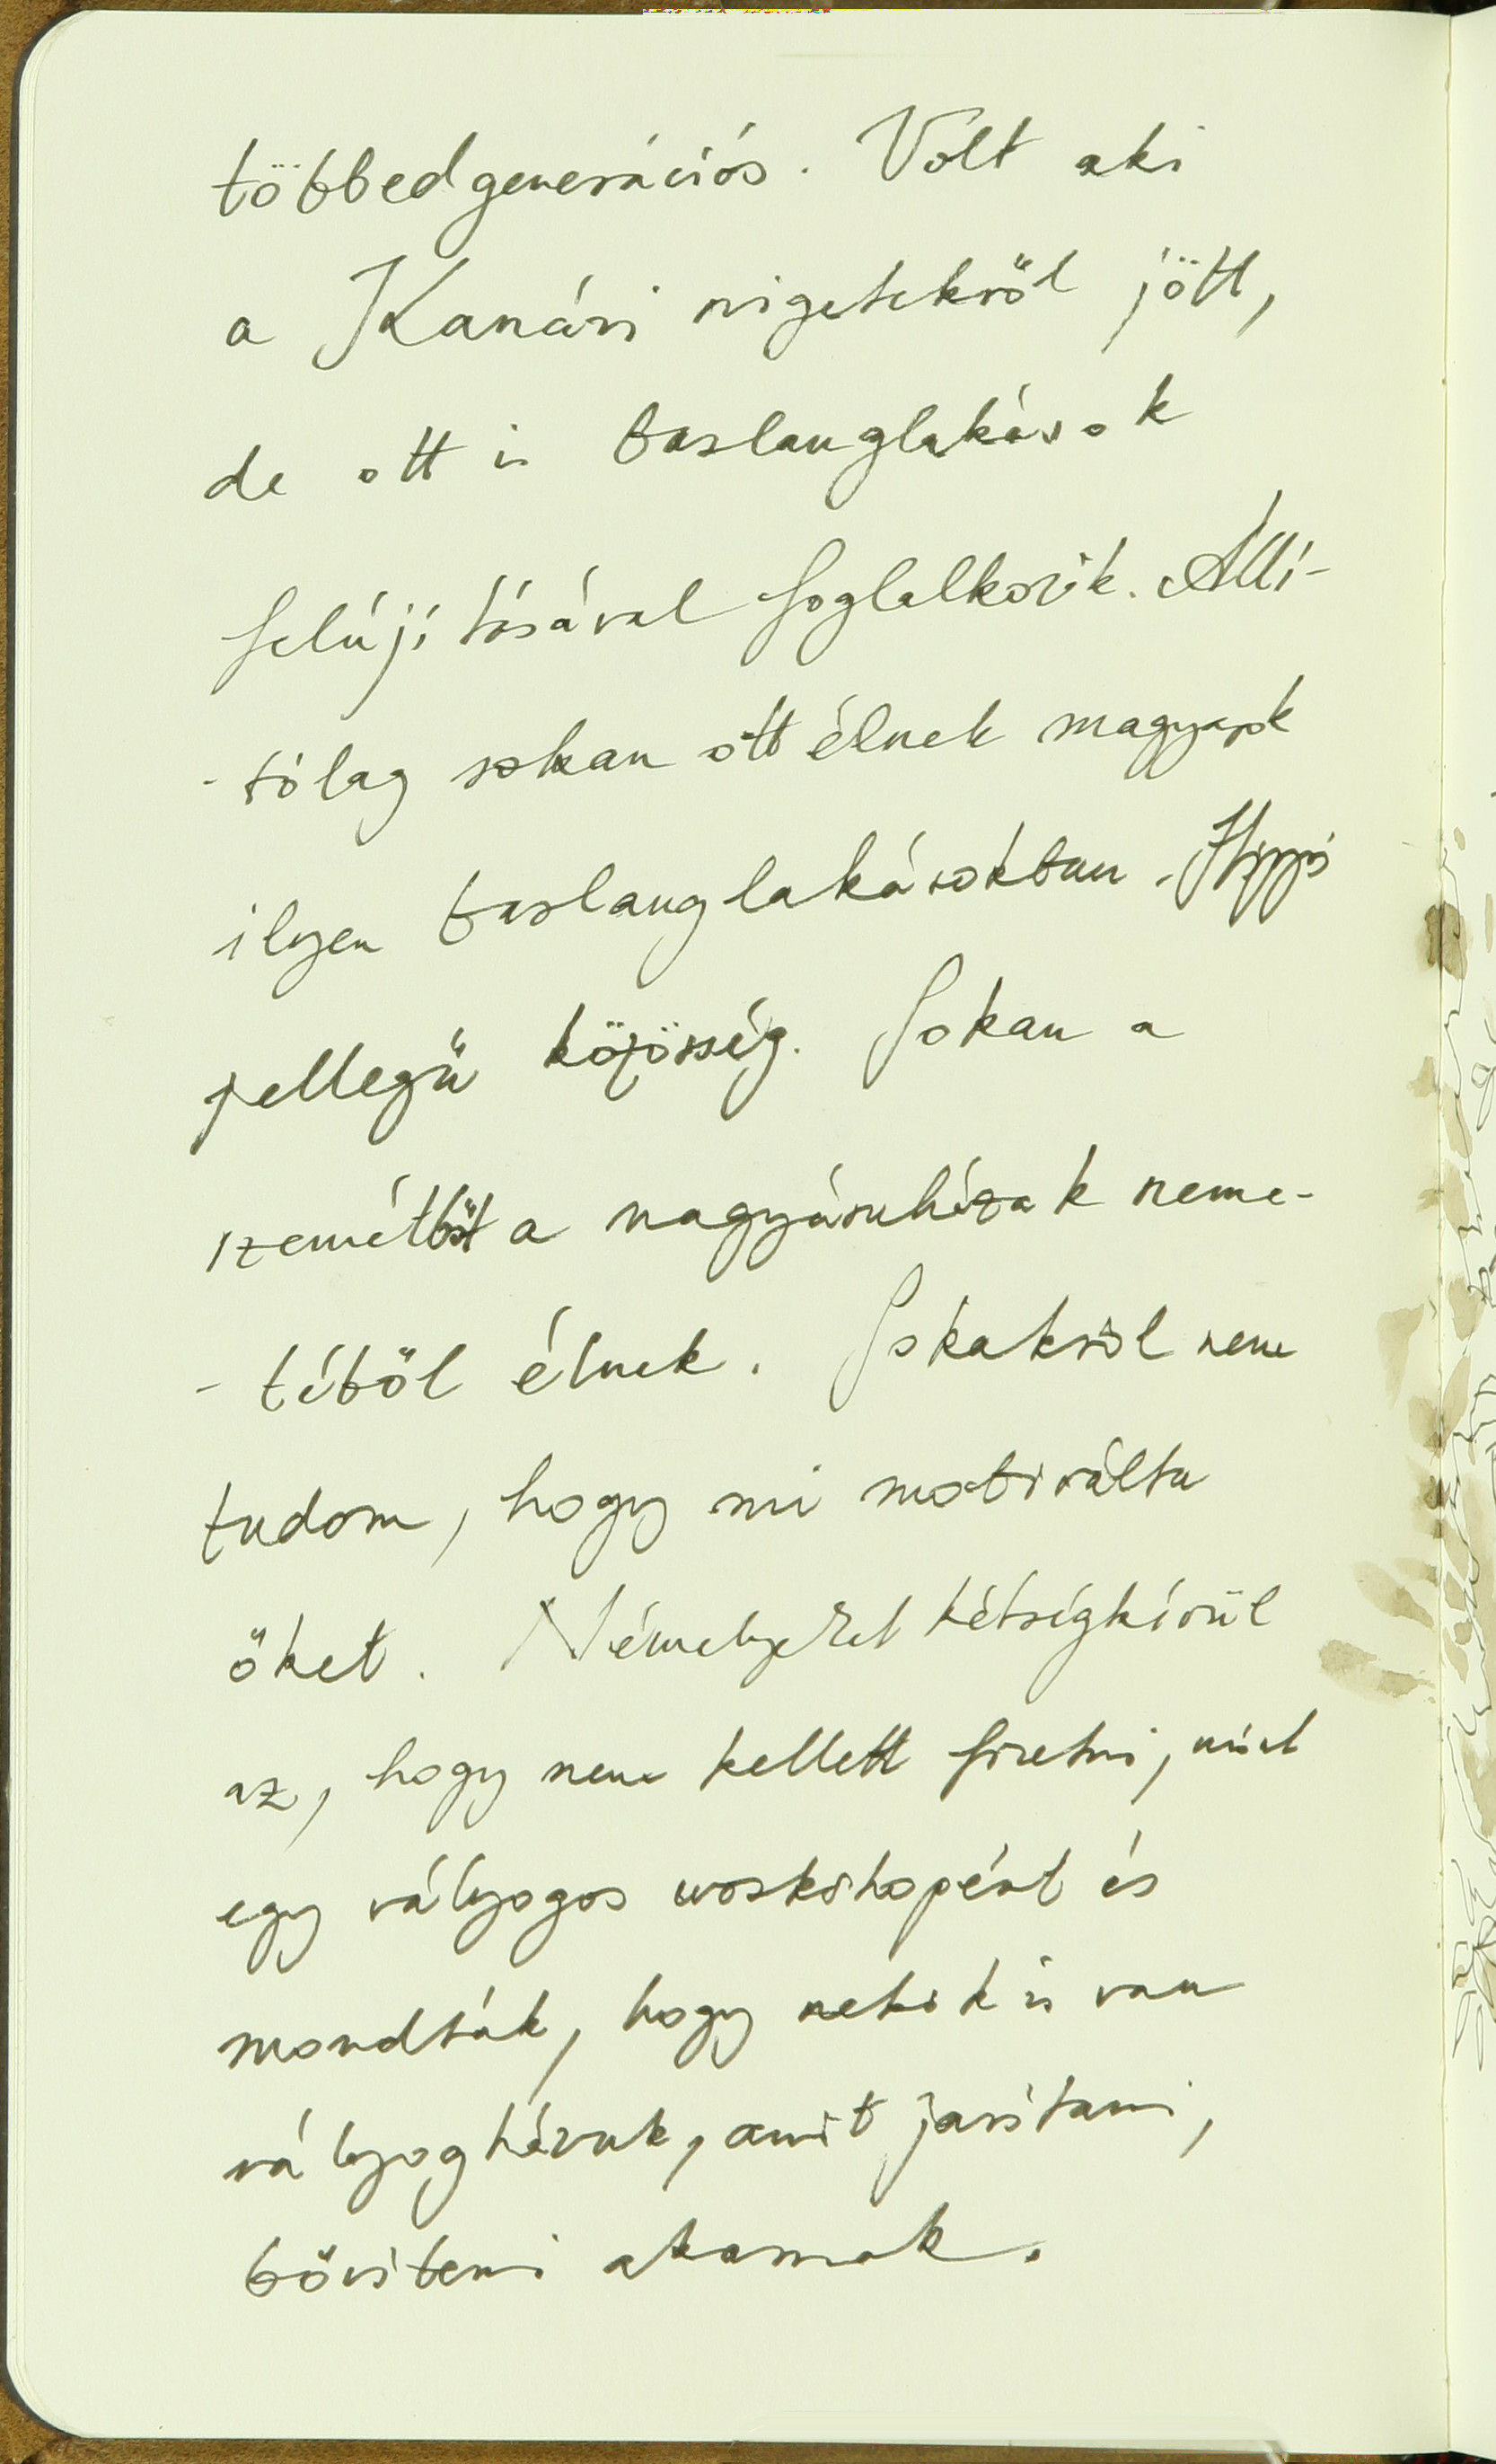 többedgenerációs. Volt aki
a Kanári szigetekről jött,
de ott is barlanglakások
felújításával foglalkozik. Állí-
-tólag sokan ott élnek magyarok
ilyen barlanglakásokban. Hippi
jellegű közösség. Sokan a
szemétből a nagyáruházak szeme-
-téből élnek. Sokakról nem
tudom, hogy mi motiválta
őket. Némelyeket kétségkívül
az, hogy nem kellett fizetni, mint
egy vályogos workshopért és
mondták, hogy nekik is van
vályogházuk, amit javítani,
bővíteni akarnak.